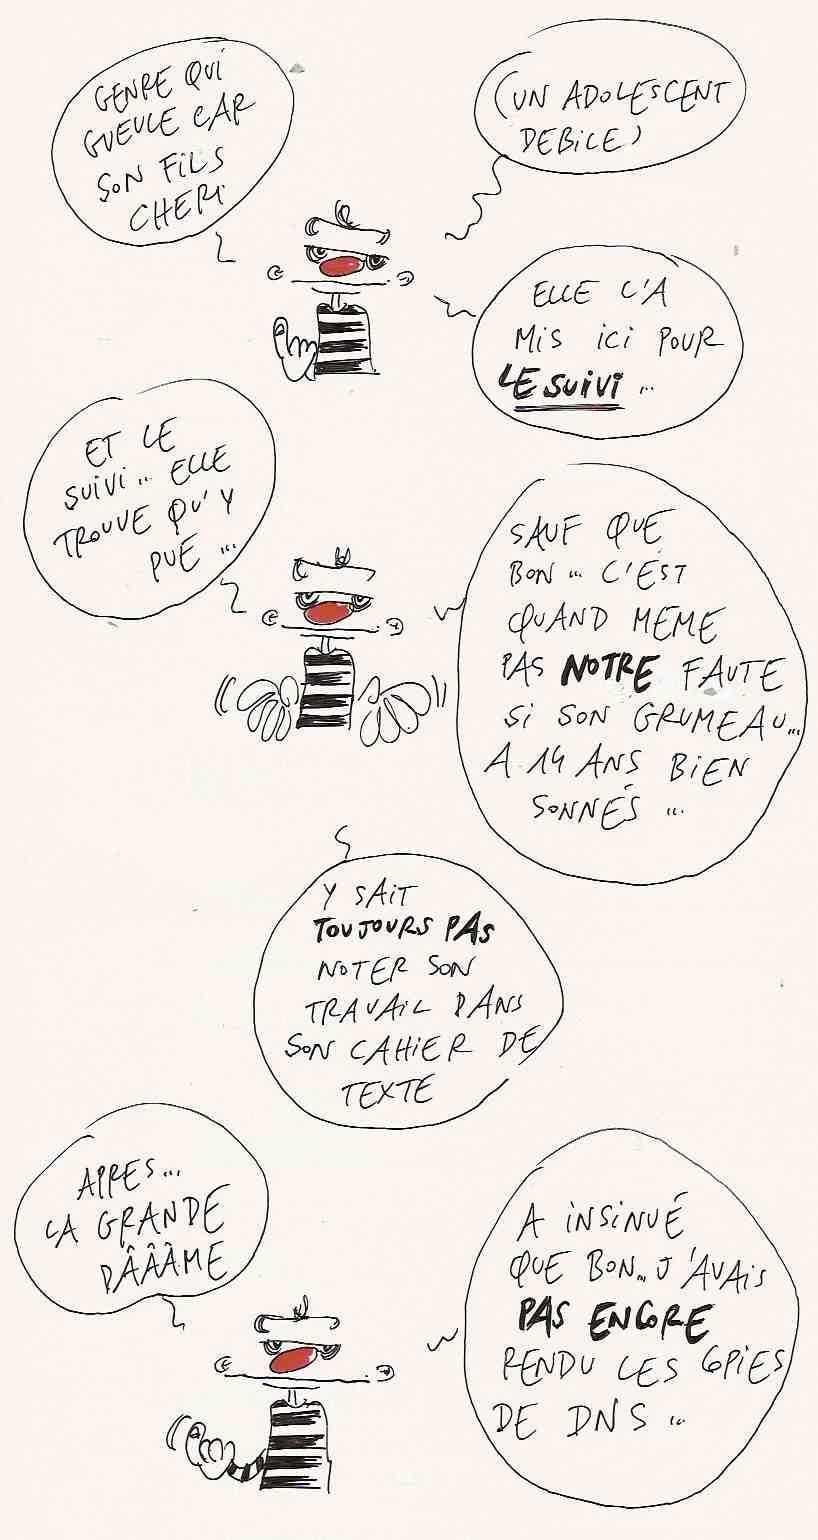 GENRE QUI
GUEULE CAR
SON FILS
CHERI
(UN ADOLESCENT
DEBILE)
ELLE L'A
MIS ICI POUR
LE SUIVI ..
ET LE
SUIVI .. ELLE
TROUVE QU'Y
PUE ...
SAUF QUE
BON ... C'EST
QUAND MEME
PAS NOTRE FAUTE
SI SON GRUMEAU...
A 14 ANS BIEN
SONNÉS ...
Y SAIT
TOUJOURS PAS
NOTER SON
TRAVAIL DANS
SON CAHIER DE
TEXTE
APRES...
LA GRANDE
DÂÂÂME
A INSINUÉ
QUE BON... J'AVAIS
PAS ENCORE
RENDU LES COPIES
DE DNS ...